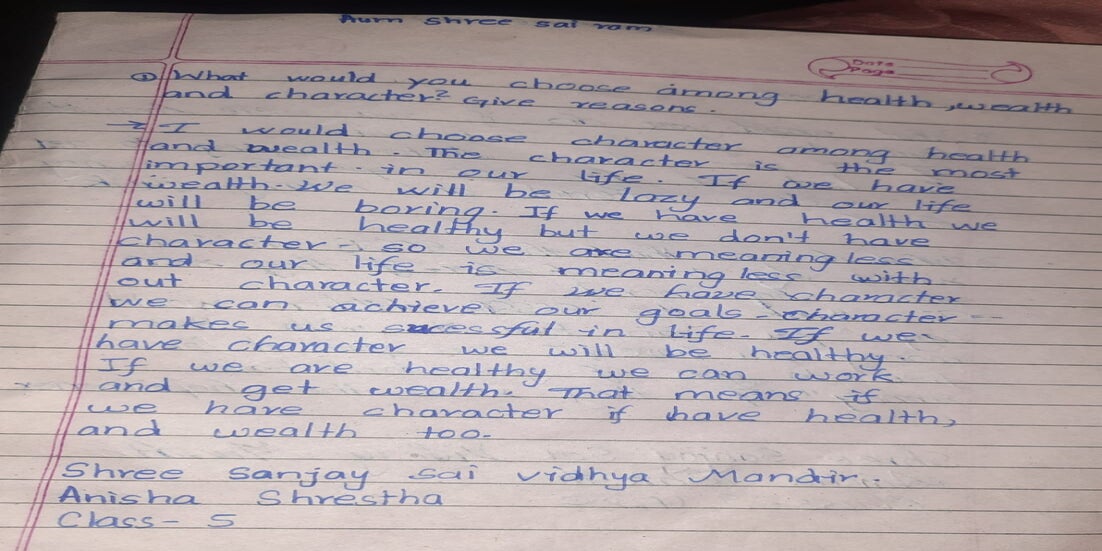 Aum Shree Sai ram
Date
Page
① What would you choose among health, wealth
and character? Give reasons.
→ I would choose character among health
and wealth. The character is the most
important in our life. If we have
wealth. We will be lazy and our life
will be boring. If we have health we
will be healthy but we don't have
character so we are meaningless
and our life is meaningless with
out character. If we have character
we can achieve our goals. character
makes us sucessful in life. If we
have character we will be healthy.
If we are healthy we can work
and get wealth. That means if
we have character if have health,
and wealth too.
Shree Sanjay Sai Vidhya Mandir.
Anisha Shrestha
Class- 5